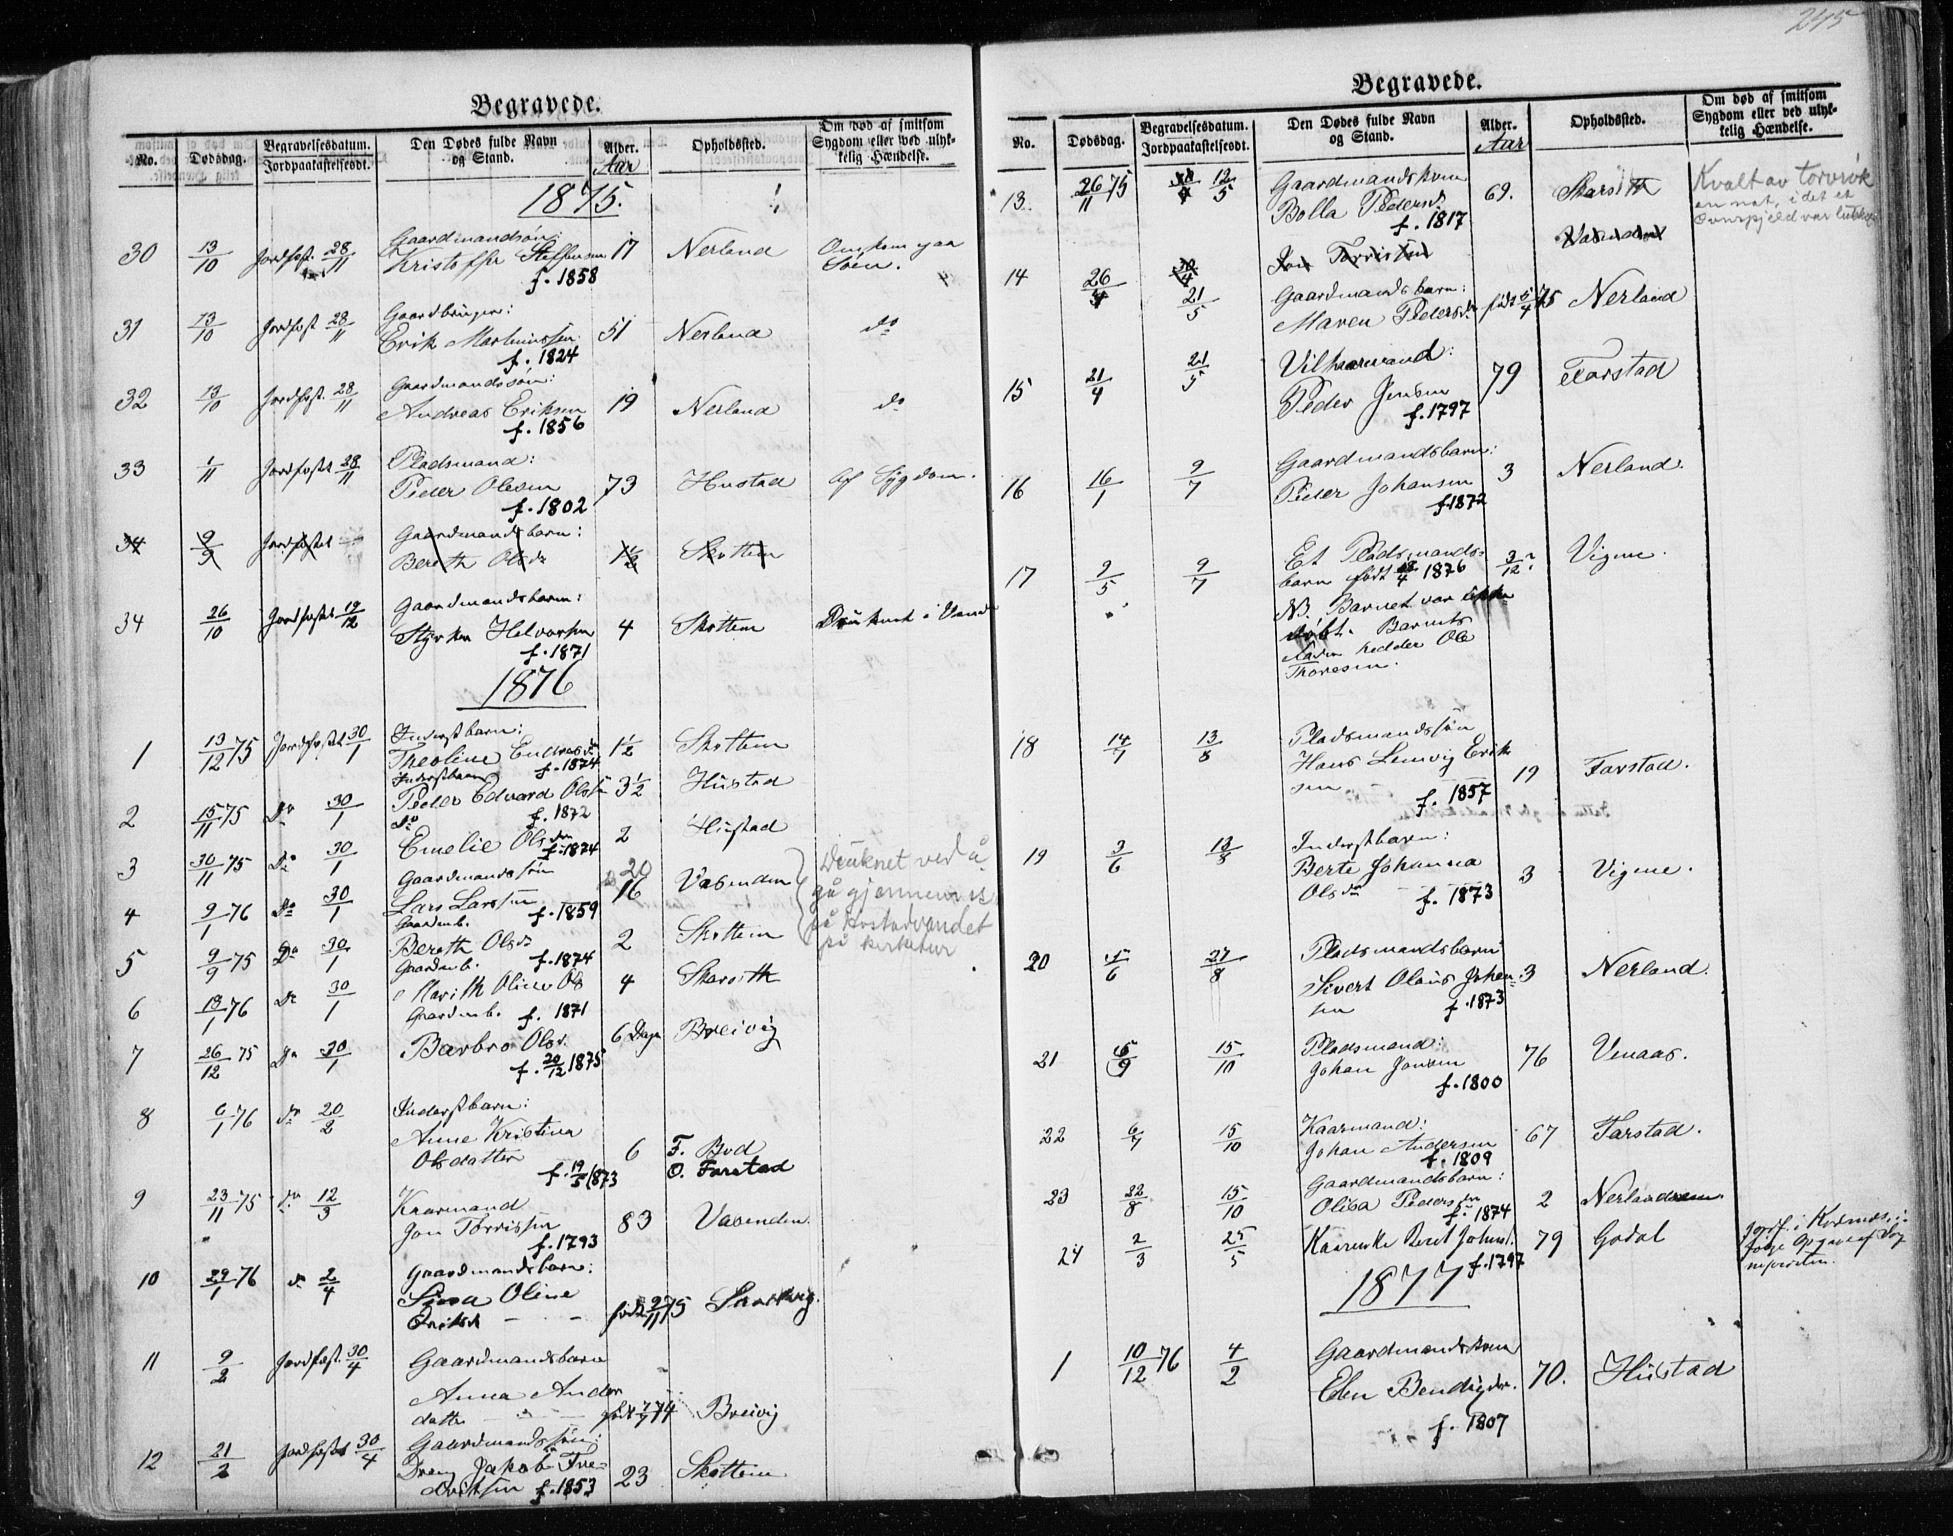 245
Begravede.
No. Dødsdag. Begravelsesdatum. Jordpaakastelsesdt. Den Dødes fulde Navn og Stand. Alder. Aar Opholdssted. Om død af smitsom Sygdom eller ved ulykkelig Hændelse.
1875.
30 13/10 Jordfæst. 28/11 Gaardmandsøn:
Kristoffer Steffensen 17 Nerland Omkom paa
f. 1858 Søen.
31 13/10 Jordfæst 28/11 Gaardbruger:
Erik Martinussen 51 Nerland do
f. 1824
32 13/10 Jordfæst. 28/11 Gaardmandssøn:
Andreas Eriksen 19 Nerland do
f. 1856
33 1/11 Jordfæstet 28/11 Pladsmand:
Peder Olesen 73 Hustad Af Sygdom.
f. 1802
34 9/9 Jordfæstet Gaardmandsbarn:
Bereth Olsdr 1 1/2 Skottem
34 26/10 Jordfæstet 19/12 Gaardmandsbarn:
Styrker Helvorsen 4 Skottem Druknet i Vand
f. 1871
1876
1 13/12 75 Jordfæstet 30/1 Inderstbarn:
Theoline Endresdr 1 1/2 Skottem
f. 1874
Inderstbarn
2 15/11 75 Do 30/1 Peder Edvard Olsen 3 1/2 Hustad
f. 1872
do
3 30/11 75 Do 30/1 Emelie Olsdtr 2 Hustad
f. 1874
Gaardmandssøn 20
4 9/1 76 Do 30/1 Lars Larssen 16 Vasenden Druknet ved å
f. 1859 gå gjennem is
Gaardmb. på Hustadvandet
5 9/9 75 Do 30/1 Bereth Olsdr 2 Skottem på kirketur
f. 1874
Gaardmb.
6 13/1 76 Do 30/1 Marith Oline Ols 4 Skarseth
Gaardmb. f. 1871
7 26/12 75 Do 30/1 Barbro Olsd. 6 Dage Breivig
f. 20/12 1875
8 6/1 76 do 20/2 Inderstbarn:
Anne Kristina
Olsdatter 6 F. Bod
f. 19/5 1873 O. Farstad
9 23/11 75 do 12/3 Kaarmand
Jon Torrissen 83 Vasenden.
f. 1793
10 29/1 76 do 2/4 Gaardmandsbarn:
Oline
født 9/11 75
11 9/2 Jordfæst. 30/4 Gaardmandsbarn
Anna Anders
datter født 7/7 74 Breivig
12 21/2 Jordfæstet 30/4 Gaardmandssøn:
Dreng Jakob Fre
driksen f. 1853 23 Skottem
Begravede.
No. Dødsdag. Begravelsesdatum. Jordpaakastelsesdt. Den Dødes fulde Navn og Stand. Alder. Aar Opholdssted. Om død af smitsom Sygdom eller ved ulykkelig Hændelse.
13. 26/11 75 30/4 12/5 Gaardmandskone Kvalt av torvrøk
Bolla Pedersd. 69. Skarseth en nat, idet et
f. 1817 ovnspjeld var lukket
Jon Torrissen Vasenden
14 26/4 30/4 21/5 Gaardmandsbarn:
Maren Pedersdr født 5/4 75 Nerland
15 21/4 21/5 Vilkaarmand:
Peder Jensen 79 Farstad
f. 1797
16 16/1 9/7 Gaardmandsbarn:
Peder Johansen 3 Nerland.
f. 1872
17 9/5 9/7 Et Pladsmands-
barn født 28/4 1876 3/12? Vigme.
NB. Barnet var ikke
døbt. Barnets
Navn hedder Ole
Thoresen.
18 14/7 13/8 Pladsmandssøn
Hans Lenvig Erik
sen 19 Farstad.
f. 1857
19 3/6 13/8 Inderstbarn:
Berte Johanna
Olsdr 3 Vigme.
f. 1873
20 5/6 27/8 Pladsmandsbarn
Sivert Olaus Johan- 3 Nerland.
sen f. 1873
21 15/9 15/10 Pladsmand:
Johan Jonsen 76 Venaas.
f. 1800
22 6/7 15/10 Kaarmand:
Johan Andersen 67 Farstad.
f. 1809
23 22/8 15/10 Gaardmandsbarn:
Olisa Pedersdtr 2 Nerland
f. 1874
24 2/3 25/5 Kaarenke Beret Johnsd. 79 Godal Jordf. i Kornes, i-
f. 1797 følge Opgave af Sog
nepresten.
1877
1 10/12 76 4/2 Gaardmandskone
Elen Bendigdr. 70. Hustad
f. 1807